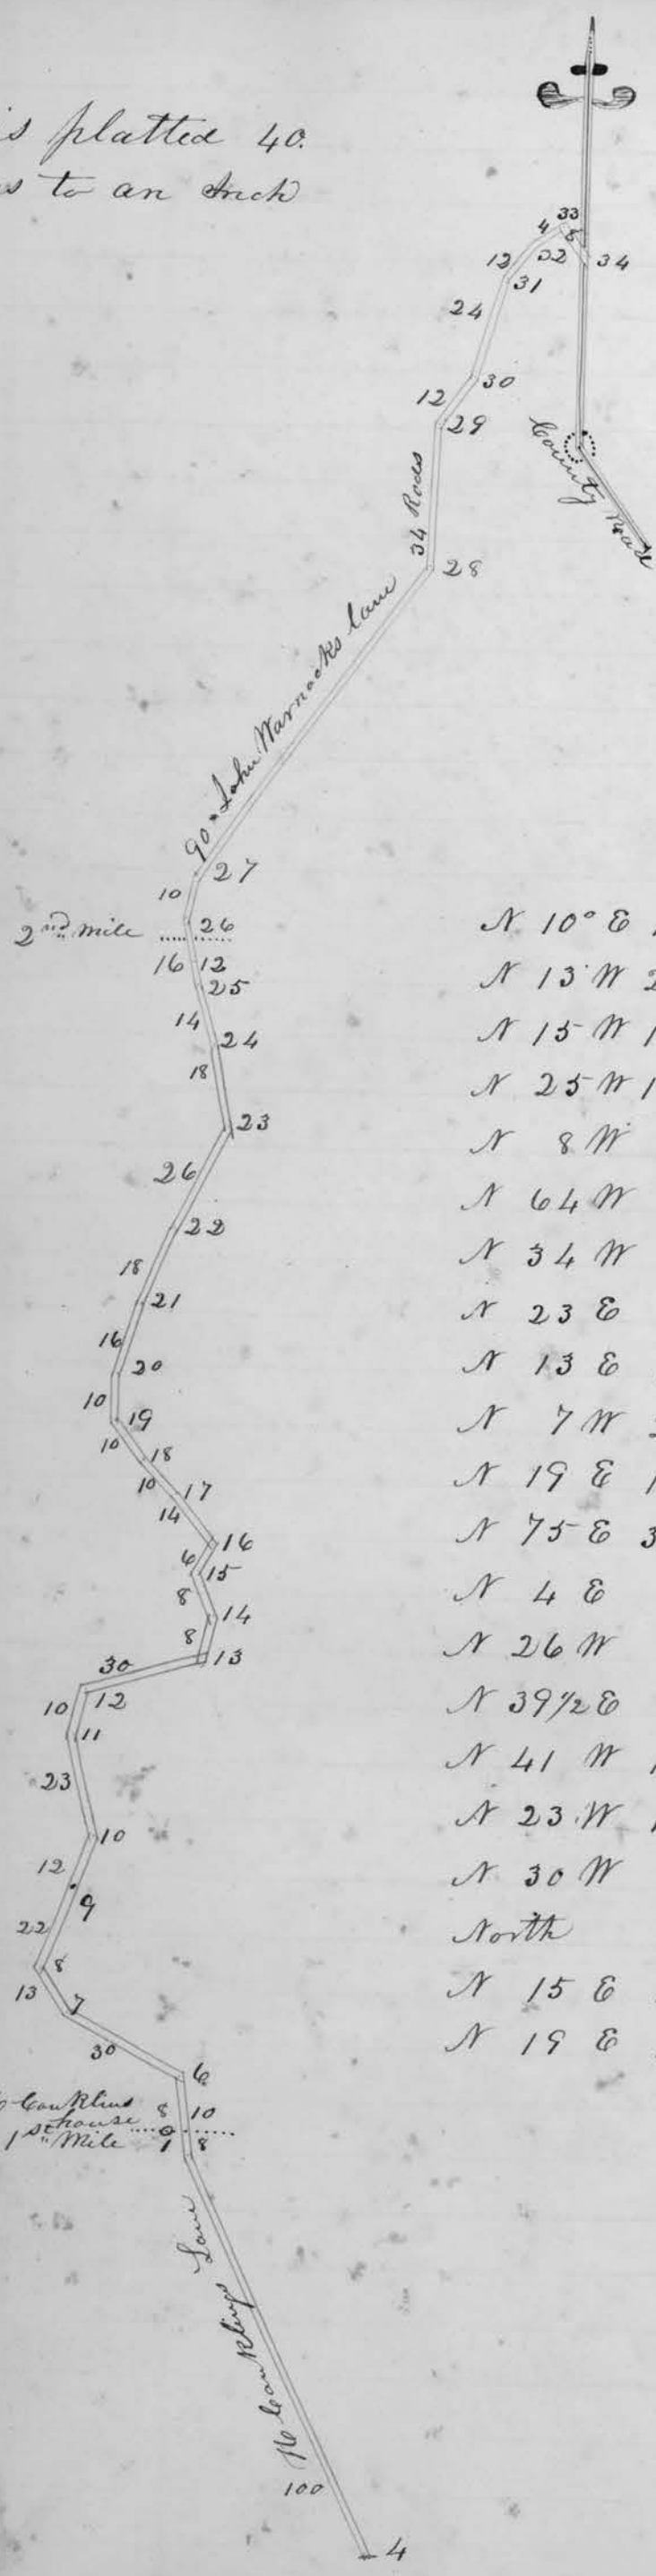 s platted 40.
s to an Inch
33
4 8
32 34
12
31
24
30
12
29
County Road
34 Rods
28
90 John Warnocks lane
27
10
26
2nd mile
16 12
25
14
24
18
23
26
22
18
21
16
20
10
19
10
18
10
17
14
16
6
15
8
14
8
13
30
12
10
11
23
10
12
9
22
8
13
7
30
6
8 10
house
1st Mile
1 8
Lane
100
4
N 10° E 1
N 13 W 2
N 15 W 1
N 25 W 1
N 8 W
N 64 W
N 34 W
N 23 E
N 13 E
N 7 W 2
N 19 E 1
N 75 E 3
N 4 E
N 26 W
N 39 1/2 E
N 41 W 1
N 23 W 1
N 30 W
North
N 15 E
N 19 E